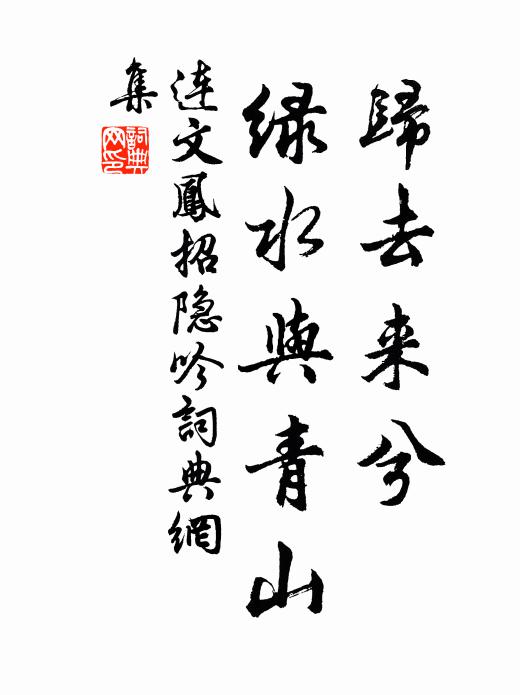 歸去来兮
緑水與青山
連文鳳招隐吟詞典網
集
詞典网印